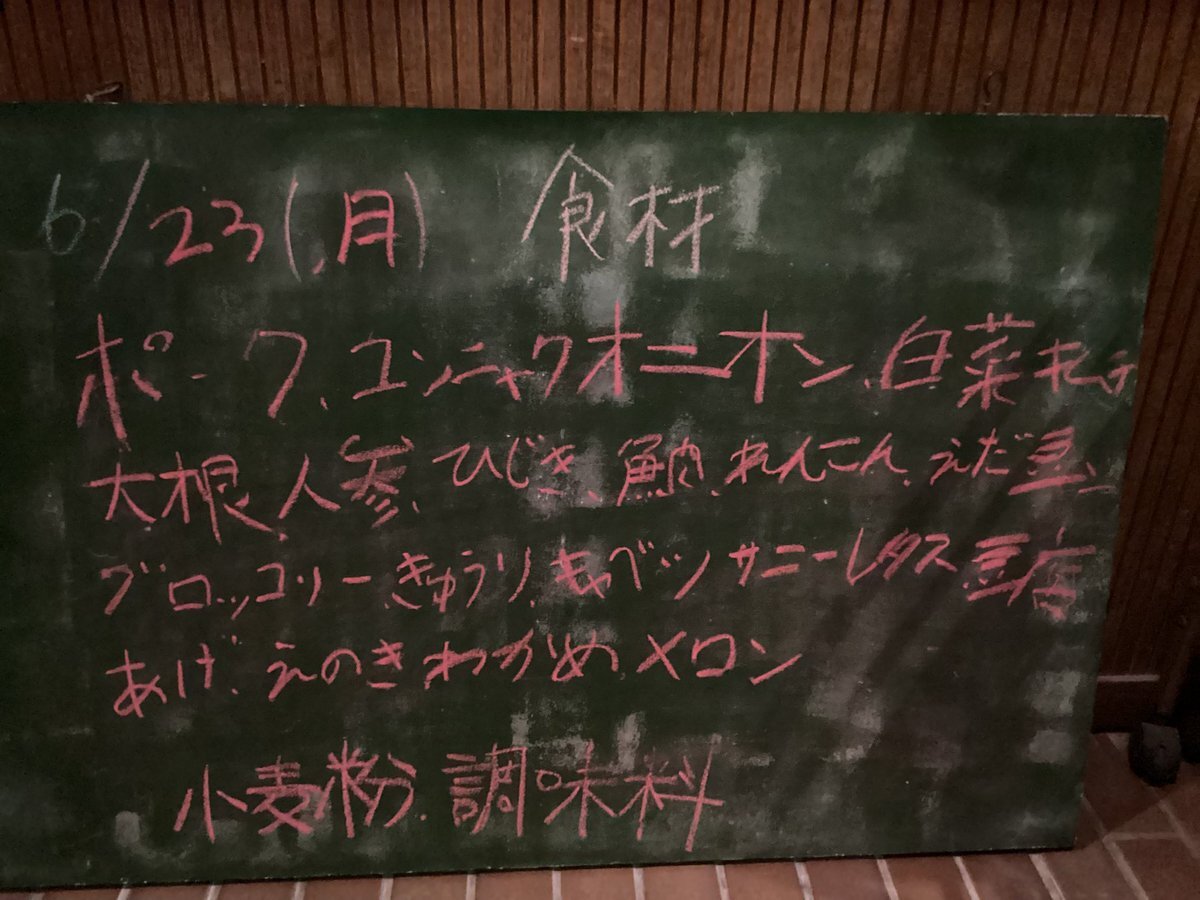 6/23(月) 食材
ポーク、コンニャクオニオン、白菜キムチ
大根、人参、ひじき、れんこん、えだ豆、
ブロッコリー、きゅうり、キャベツ サニーレタス 豆腐
あげ、えのき わかめ、メロン
小麦粉、調味料